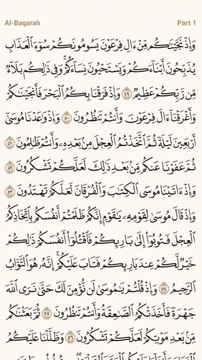 Al-Baqarah Part 1
وَإِذْ نَجَّيْنَٰكُم مِّنْ ءَالِ فِرْعَوْنَ يَسُومُونَكُمْ سُوٓءَ ٱلْعَذَابِ
يُذَبِّحُونَ أَبْنَآءَكُمْ وَيَسْتَحْيُونَ نِسَآءَكُمْ ۚ وَفِى ذَٰلِكُم بَلَآءٌ
مِّن رَّبِّكُمْ عَظِيمٌ ٤٩ وَإِذْ فَرَقْنَا بِكُمُ ٱلْبَحْرَ فَأَنجَيْنَٰكُمْ
وَأَغْرَقْنَآ ءَالَ فِرْعَوْنَ وَأَنتُمْ تَنظُرُونَ ٥٠ وَإِذْ وَٰعَدْنَا مُوسَىٰٓ
أَرْبَعِينَ لَيْلَةً ثُمَّ ٱتَّخَذْتُمُ ٱلْعِجْلَ مِنۢ بَعْدِهِۦ وَأَنتُمْ ظَٰلِمُونَ ٥١
ثُمَّ عَفَوْنَا عَنكُم مِّنۢ بَعْدِ ذَٰلِكَ لَعَلَّكُمْ تَشْكُرُونَ ٥٢
وَإِذْ ءَاتَيْنَا مُوسَى ٱلْكِتَٰبَ وَٱلْفُرْقَانَ لَعَلَّكُمْ تَهْتَدُونَ ٥٣
وَإِذْ قَالَ مُوسَىٰ لِقَوْمِهِۦ يَٰقَوْمِ إِنَّكُمْ ظَلَمْتُمْ أَنفُسَكُم بِٱتِّخَاذِكُمُ
ٱلْعِجْلَ فَتُوبُوٓا۟ إِلَىٰ بَارِئِكُمْ فَٱقْتُلُوٓا۟ أَنفُسَكُمْ ذَٰلِكُمْ
خَيْرٌ لَّكُمْ عِندَ بَارِئِكُمْ فَتَابَ عَلَيْكُمْ ۚ إِنَّهُۥ هُوَ ٱلتَّوَّابُ
ٱلرَّحِيمُ ٥٤ وَإِذْ قُلْتُمْ يَٰمُوسَىٰ لَن نُّؤْمِنَ لَكَ حَتَّىٰ نَرَى ٱللَّهَ
جَهْرَةً فَأَخَذَتْكُمُ ٱلصَّٰعِقَةُ وَأَنتُمْ تَنظُرُونَ ٥٥ ثُمَّ بَعَثْنَٰكُم
مِّنۢ بَعْدِ مَوْتِكُمْ لَعَلَّكُمْ تَشْكُرُونَ ٥٦ وَظَلَّلْنَا عَلَيْكُمُ